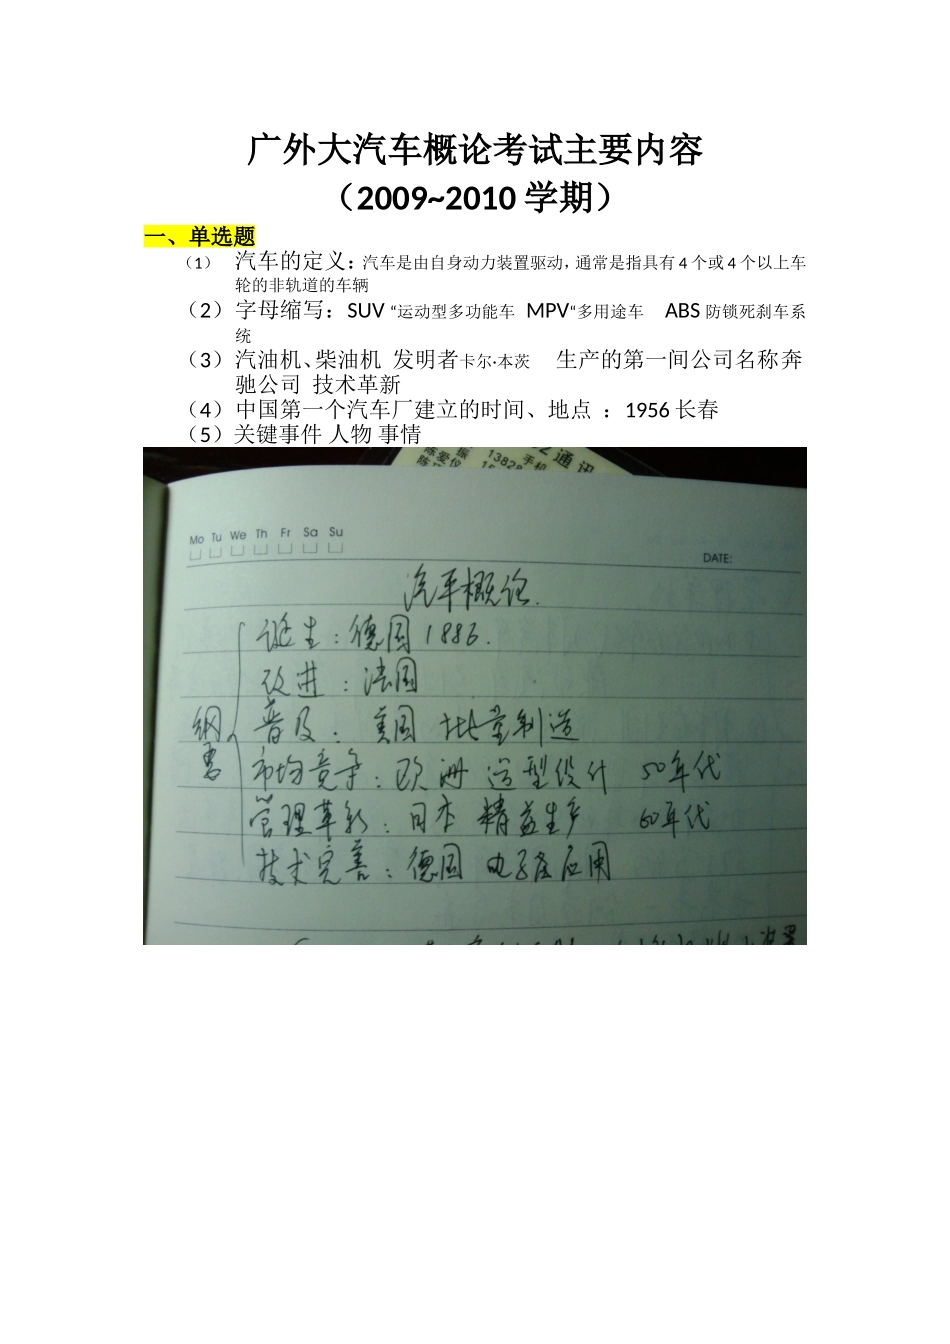 广外大汽车概论考试主要内容
（2009~2010 学期）
一、单选题
（1） 汽车的定义：汽车是由自身动力装置驱动，通常是指具有 4 个或 4 个以上车
轮的非轨道的车辆
（2）字母缩写：SUV “运动型多功能车 MPV“多用途车 ABS 防锁死刹车系
统
（3）汽油机、柴油机 发明者卡尔·本茨 生产的第一间公司名称奔
驰公司 技术革新
（4）中国第一个汽车厂建立的时间、地点 ：1956 长春
（5）关键事件 人物 事情
陈爱仪 振 13828 手机 通讯
Mo Tu We Th Fr Sa Su
DATE:
汽车概论.
诞生：德国 1886.
改进：法国
纲要
普及：美国 批量制造
市场竞争：欧洲 造型设计 50年代
管理革新：日本 精益生产 60年代
技术完善：德国 电子应用